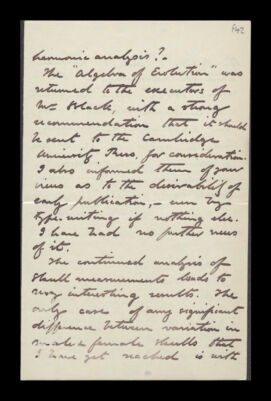 f42
harmonic analysis?.
The "Algebra of Evolution" was
returned to the executors of
Mr Black, with a strong
recommendation that it should
be sent to the Cambridge
University Press, for consideration.
I also informed them of your
views as to the desirability of
early publication, - even by
type-writing if nothing else.
I have had no further news
of it.
The continued analysis of
skull measurements leads to
very interesting results. The
only case of any significant
difference between variation in
male & female skulls that
I have yet reached is with